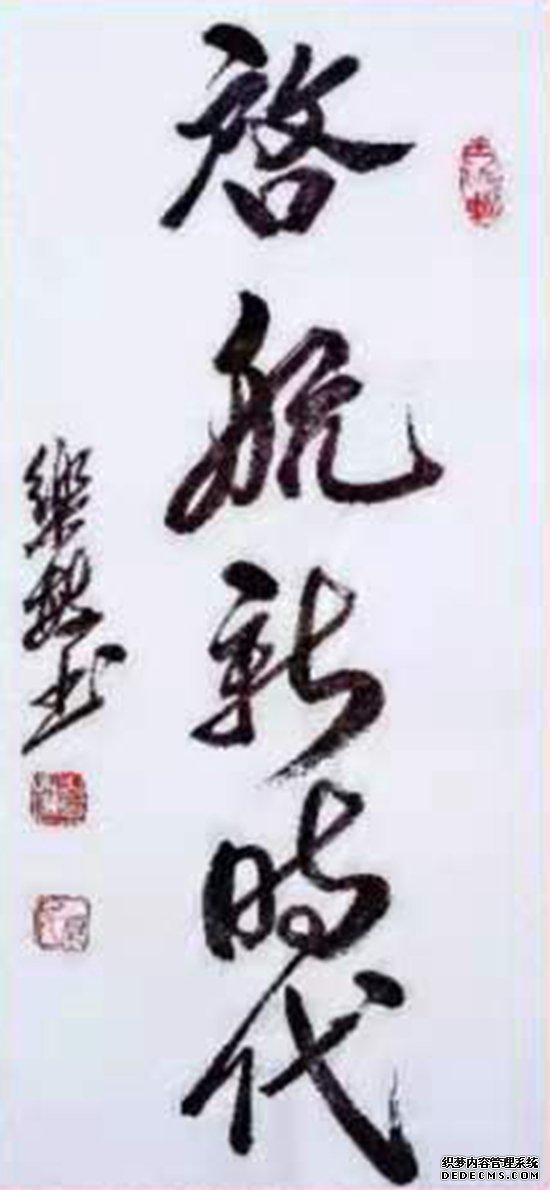 啓航新時代
织梦内容管理系统
DEDECMS.COM